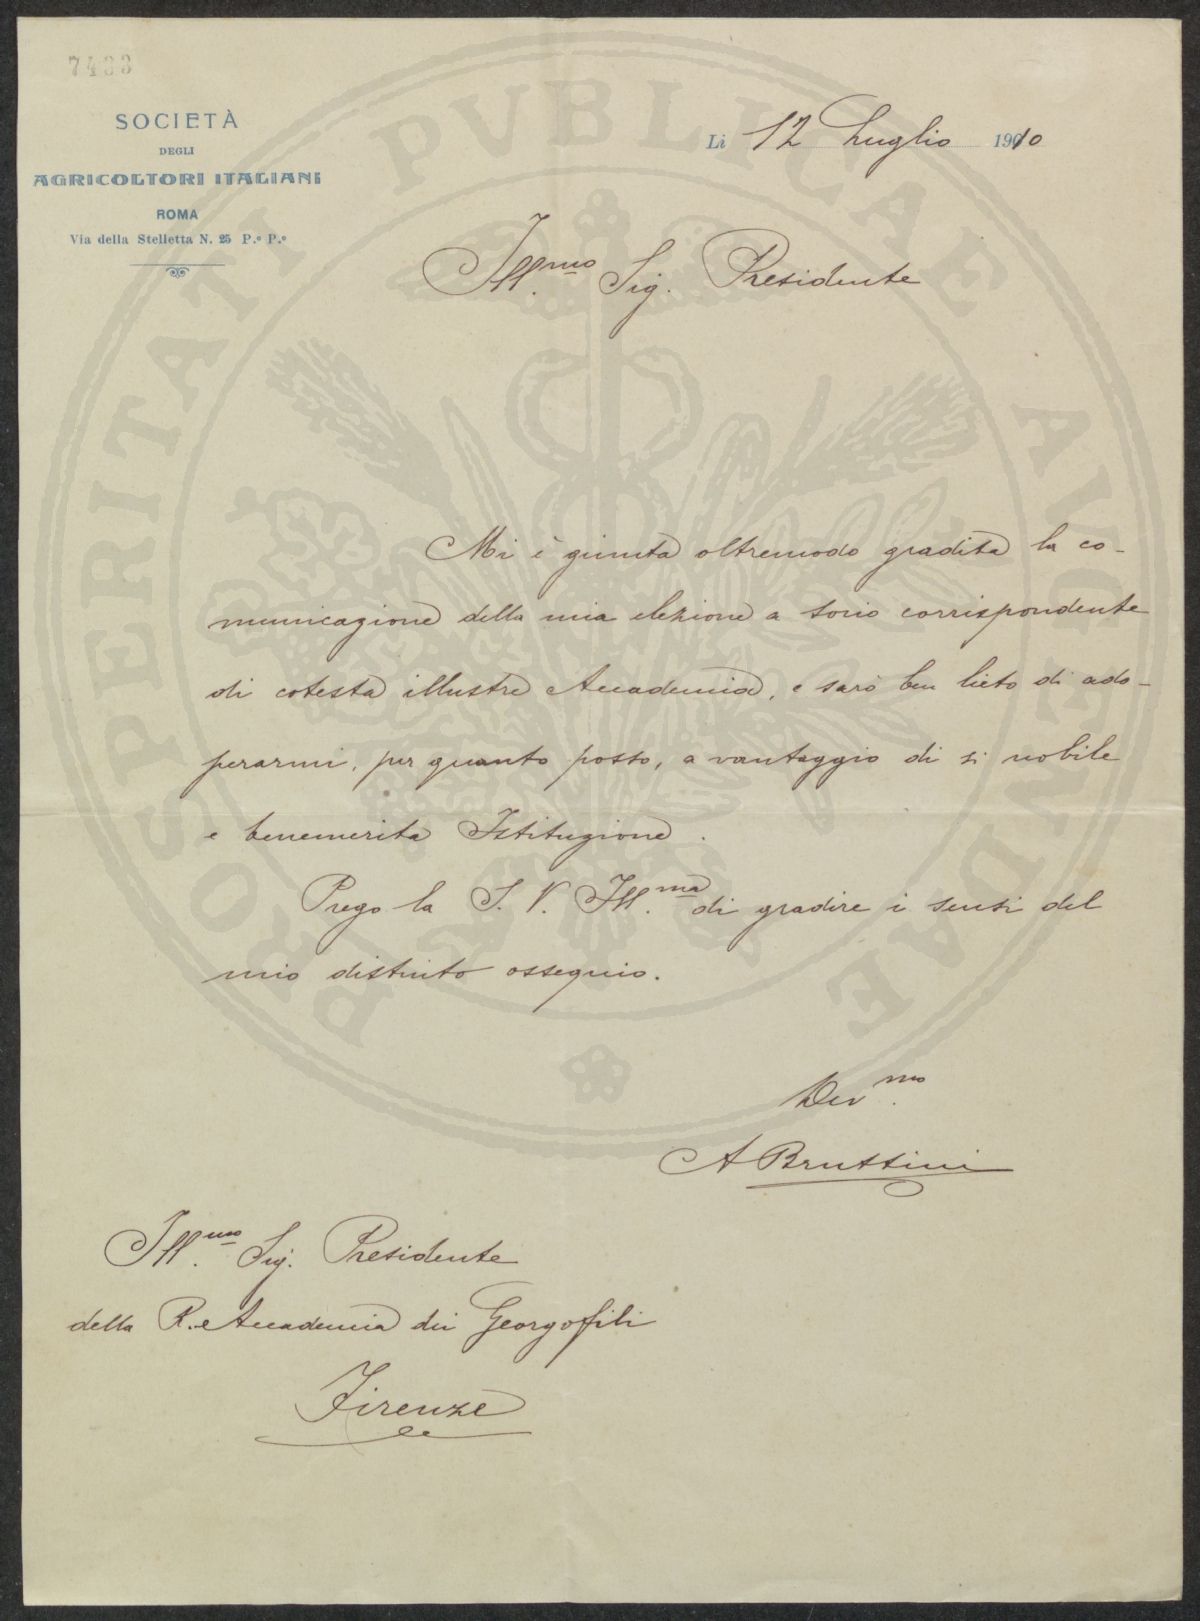 7433
SOCIETÀ
DEGLI
AGRICOLTORI ITALIANI
ROMA
Via della Stelletta N. 25 P.º P.º
Li 12 Luglio 1910
Ill.mo Sig. Presidente
Mi è giunta oltremodo gradita la co-
municazione della mia elezione a socio corrispondente
di cotesta illustre Accademia, e sarò ben lieto di ado-
perarmi, per quanto posso, a vantaggio di sì nobile
e benemerita Istituzione.
Prego la S. V. Ill.ma di gradire i sensi del
mio distinto ossequio.
Dev.mo
A Bruttini
Ill.mo Sig. Presidente
della R. Accademia dei Georgofili
Firenze
PROSPERITATI PVBLICAE AVGENDAE